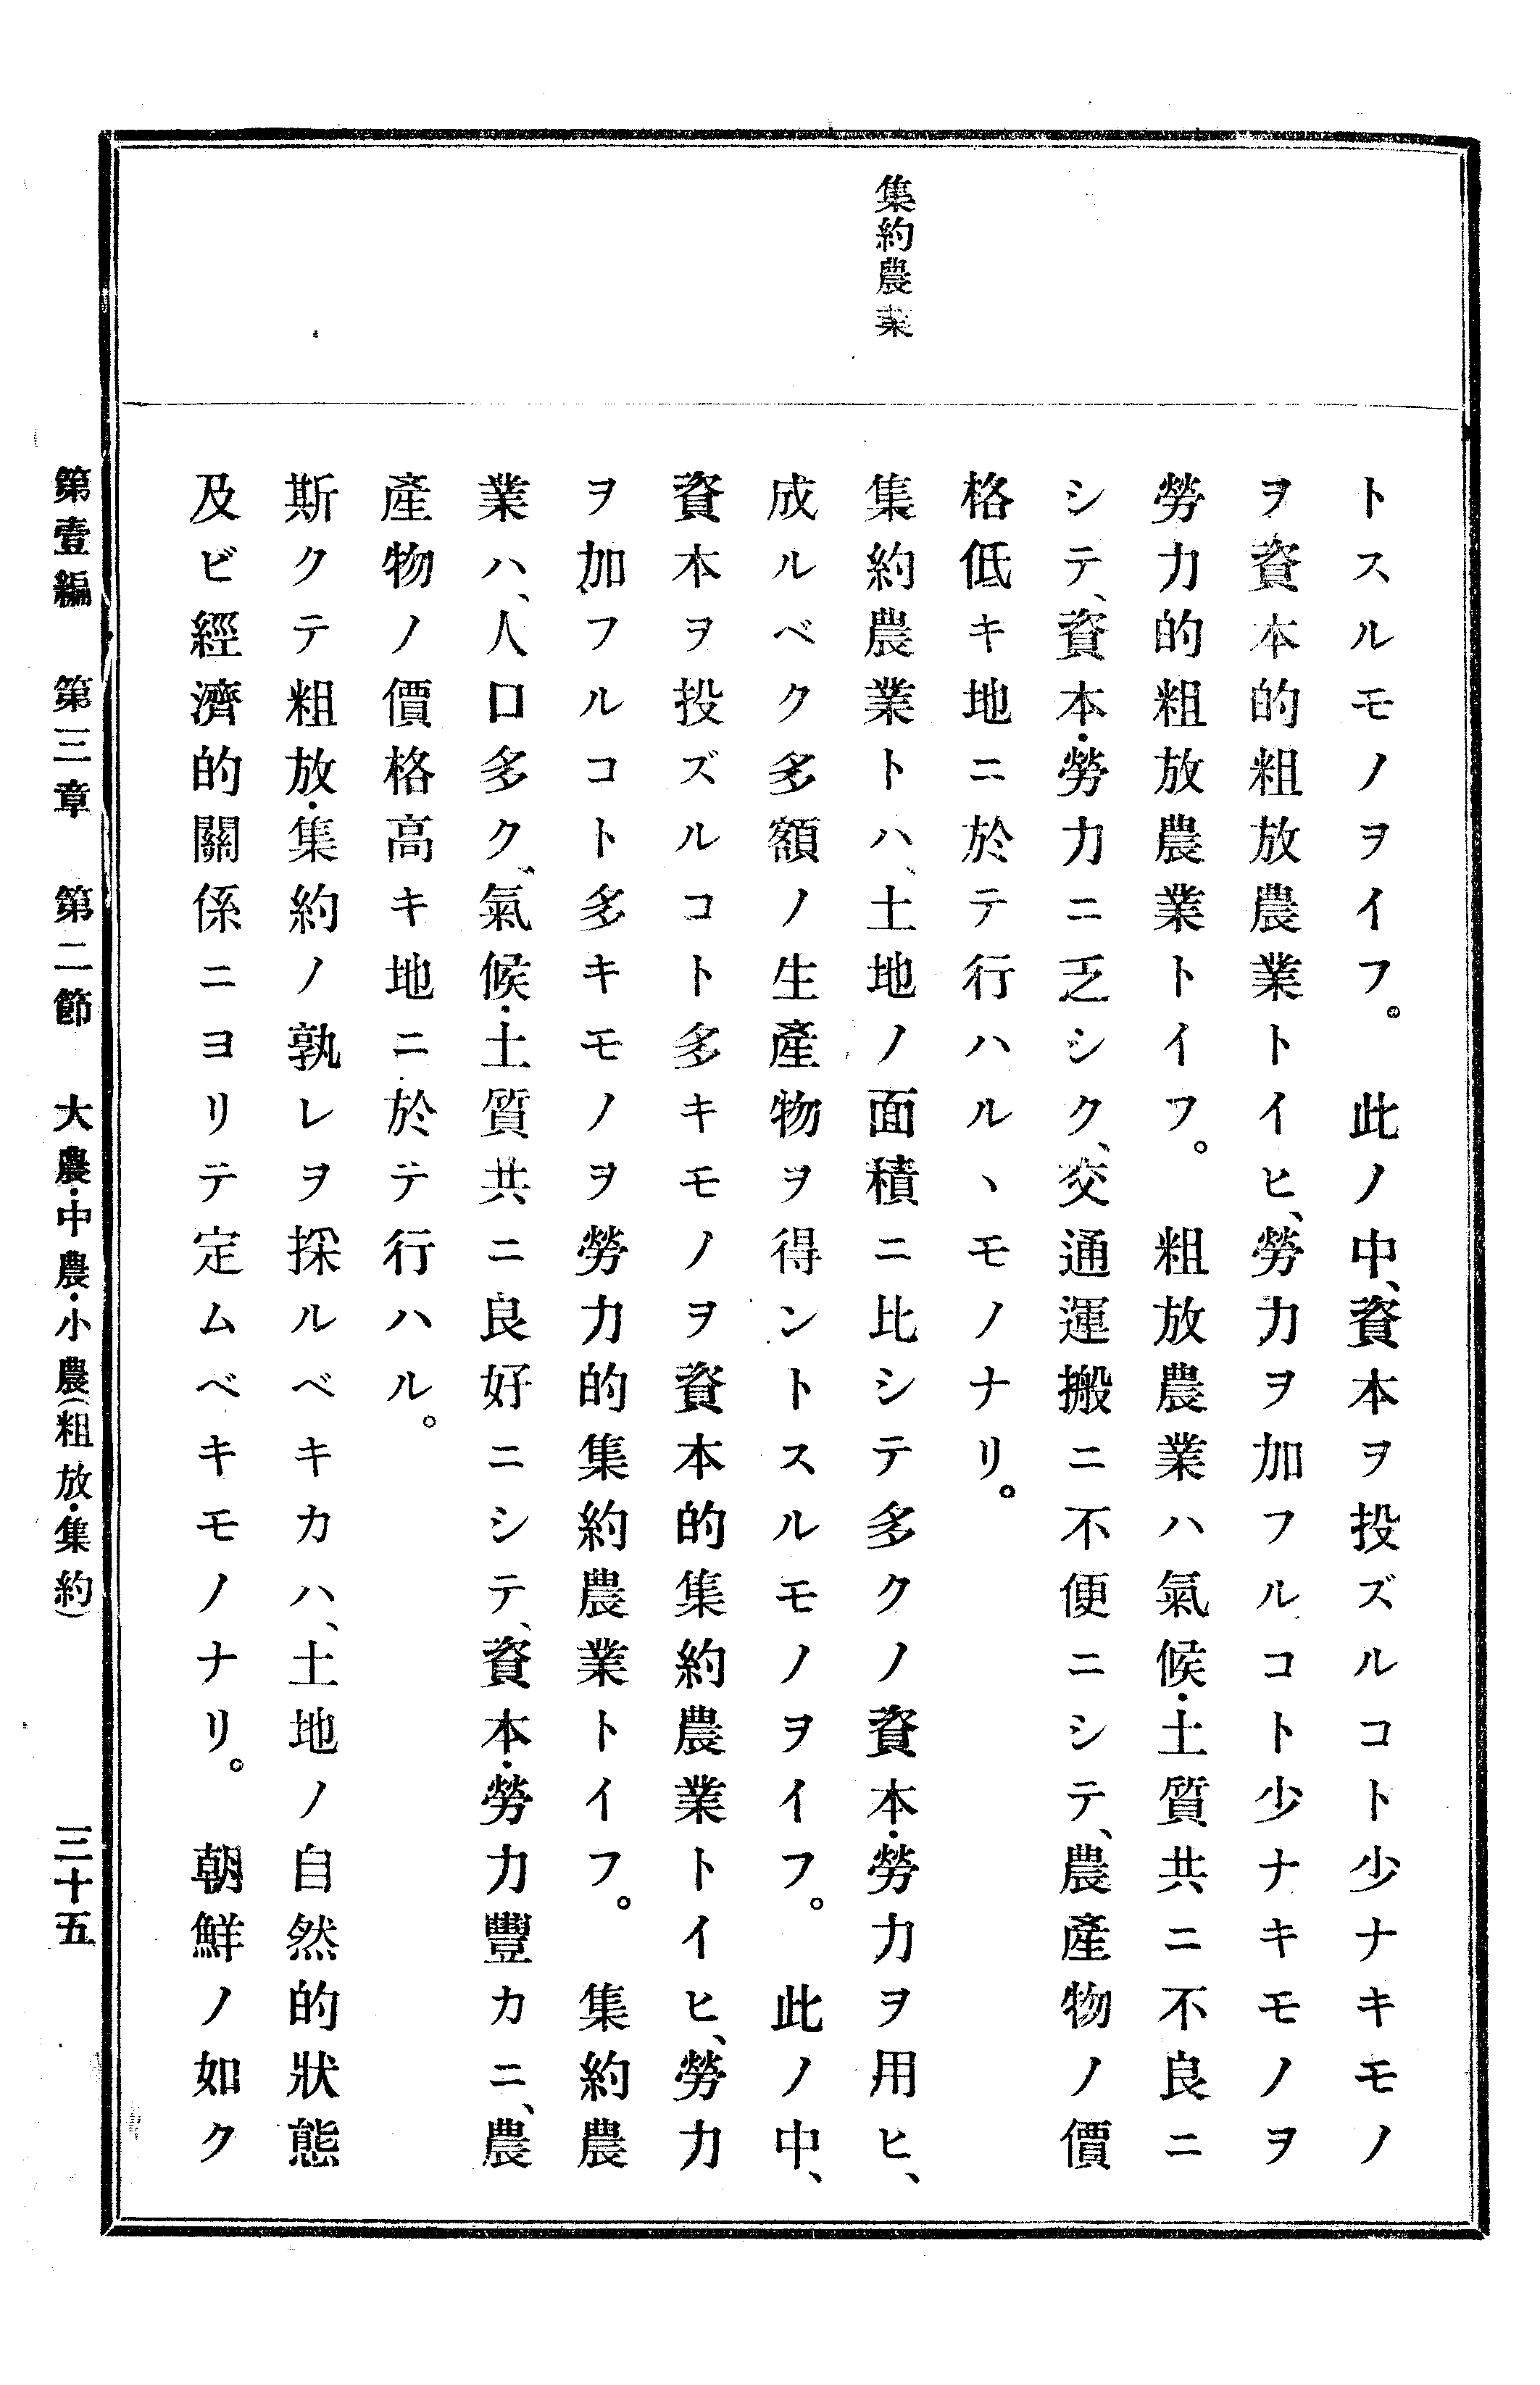 集約農業
トスルモノヲイフ。　此ノ中、資本ヲ投ズルコト少ナキモノ
ヲ資本的粗放農業トイヒ、勞力ヲ加フルコト少ナキモノヲ
勞力的粗放農業トイフ。　粗放農業ハ氣候・土質共ニ不良ニ
シテ、資本・勞力ニ乏シク、交通運搬ニ不便ニシテ、農產物ノ價
格低キ地ニ於テ行ハルヽモノナリ。
集約農業トハ、土地ノ面積ニ比シテ多クノ資本・勞力ヲ用ヒ、
成ルベク多額ノ生產物ヲ得ントスルモノヲイフ。　此ノ中、
資本ヲ投ズルコト多キモノヲ資本的集約農業トイヒ、勞力
ヲ加フルコト多キモノヲ勞力的集約農業トイフ。　集約農
業ハ、人口多ク、氣候・土質共ニ良好ニシテ、資本・勞力豐カニ、農
產物ノ價格高キ地ニ於テ行ハル。
斯クテ粗放・集約ノ孰レヲ採ルベキカハ、土地ノ自然的狀態
及ビ經濟的關係ニヨリテ定ムベキモノナリ。　朝鮮ノ如ク
第壹編　第三章　第二節　大農・中農・小農(粗放・集約)　三十五